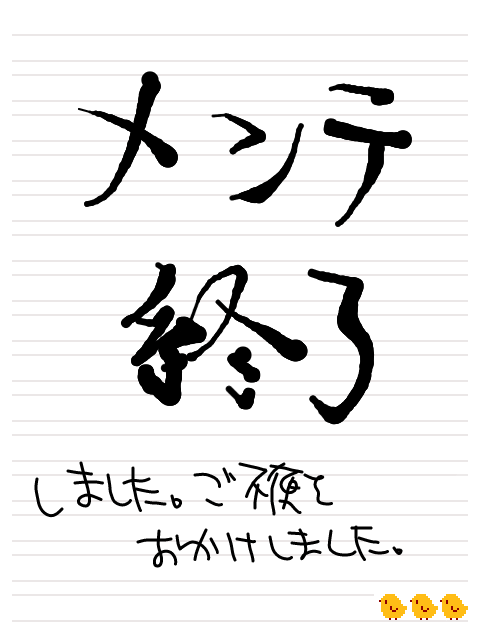 メンテ
終了
しました。ご不便を
おかけしました。